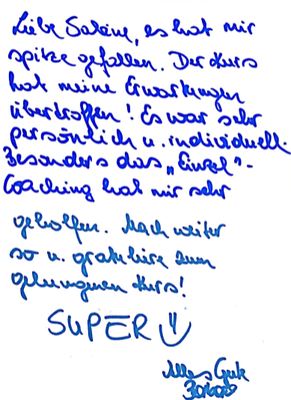 Liebe Sabine, es hat mir
spitze gefallen. Der Kurs
hat meine Erwartungen
übertroffen! Es war sehr
persönlich u. individuell.
Besonders das „Einzel"-
Coaching hat mir sehr
geholfen. Mach weiter
so u. gratuliere zum
gelungenen Kurs!
SUPER
Alles Gute